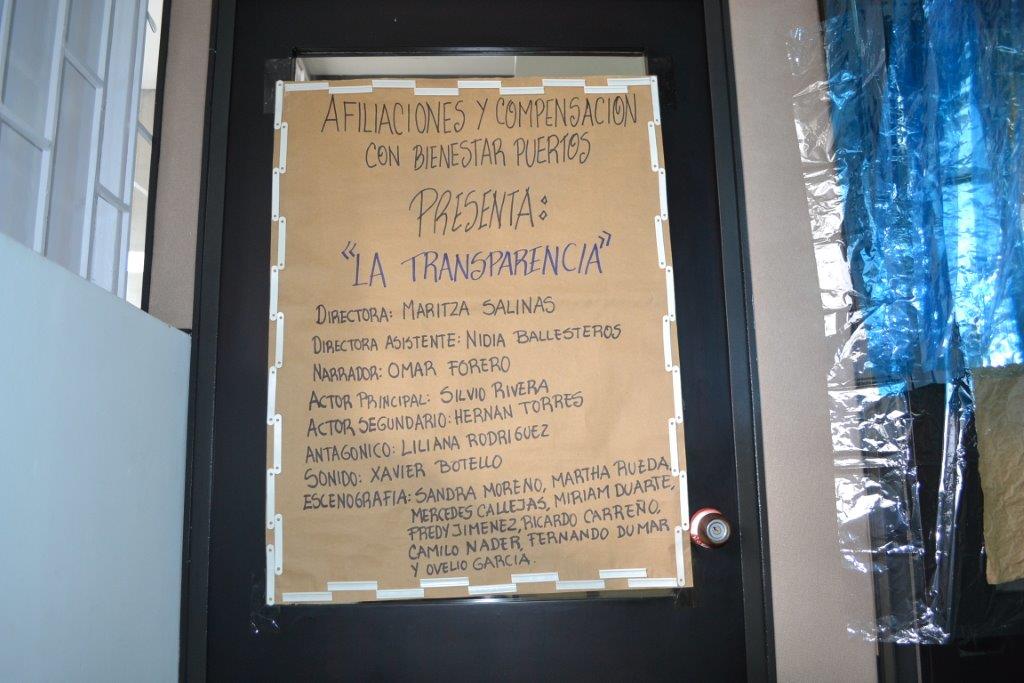 AFILIACIONES Y COMPENSACION
CON BIENESTAR PUERTOS
PRESENTA:
"LA TRANSPARENCIA"
DIRECTORA: MARITZA SALINAS
DIRECTORA ASISTENTE: NIDIA BALLESTEROS
NARRADOR: OMAR FORERO
ACTOR PRINCIPAL: SILVIO RIVERA
ACTOR SEGUNDARIO: HERNAN TORRES
ANTAGONICO: LILIANA RODRIGUEZ
SONIDO: XAVIER BOTELLO
ESCENOGRAFIA: SANDRA MORENO, MARTHA RUEDA,
MERCEDES CALLEJAS, MIRIAM DUARTE,
FREDY JIMENEZ, RICARDO CARREÑO,
CAMILO NADER, FERNANDO DUMAR
Y OVELIO GARCIA.